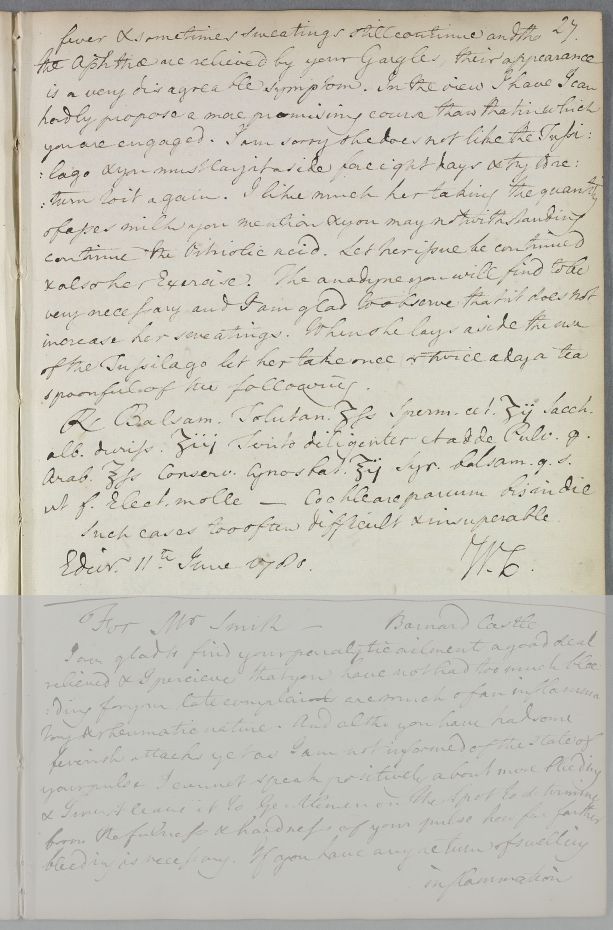 27.
fever & sometimes sweatings still continue and tho
the Aphthæ are relieved by your Gargle, their appearance
is a very disagreeable symptom. In the view I have I can
hardly propose a more promising course than that in which
you are engaged. I am sorry she does not like the Tussi:
:lago & you must lay it aside for eight days & try to re:
:turn to it again. I like much her taking the quantity
of asses milk you mention & you may notwithstanding
continue the Vitriolic acid. Let her issue be continued
& also her Exercise. The anodyne you will find to be
very necessary and I am glad to observe that it does not
increase her sweatings. When she lays aside the use
of the Tussilago let her take once or twice a day a tea
spoonful of the following.
℞ Balsam. Tolutan. ʒſs Sperm. cet. ʒij Sacch.
alb. duriss. ʒiij Trito diligenter et adde Pulv. g.
Arab. ʒſs Conserv. Cynosbat. ʒij Syr. balsam. q. s.
ut f. Elect. molle — Cochleare parvum bis in die
Such cases too often difficult & insuperable.
Edinr. 11th June 1780. W.C.
For Mr Smith — Barnard Castle
I am glad to find your paralytic ailment a good deal
relieved & I perceive that you have not had too much blee
:ding for your late complaints are much of an inflamma
tory & rheumatic nature. And altho you have had some
feverish attacks yet as I am not informed of the State of
your pulse I cannot speak positively about more bleeding
& I must leave it to Gentlemen on the Spot to determine
from the fulness & hardness of your pulse how far farther
bleeding is necessary. If you have any return of swelling
inflammation